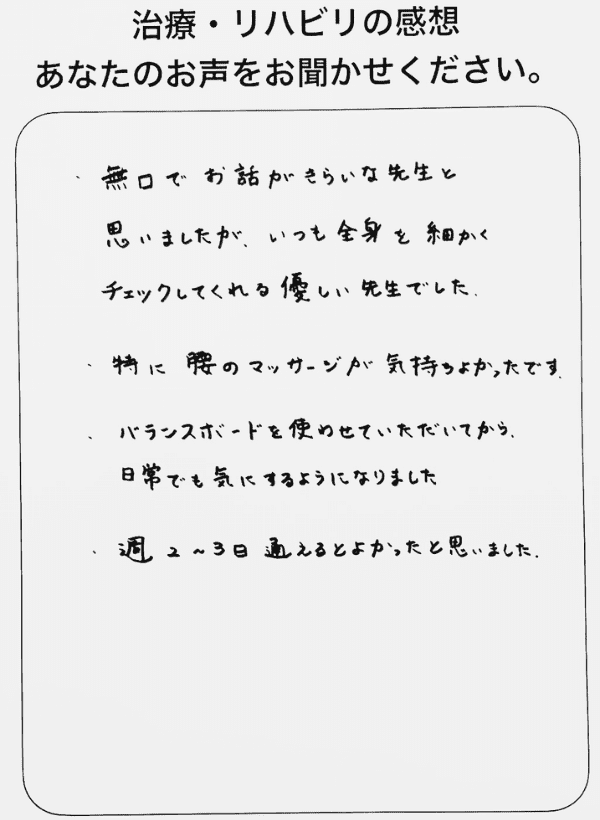 治療・リハビリの感想
あなたのお声をお聞かせください。
・無口でお話がきらいな先生と
思いましたが、いつも全身を細かく
チェックしてくれる優しい先生でした.
・特に腰のマッサージが気持ちよかったです.
・バランスボードを使わせていただいてから、
日常でも気にするようになりました
・週2~3日通えるとよかったと思いました.